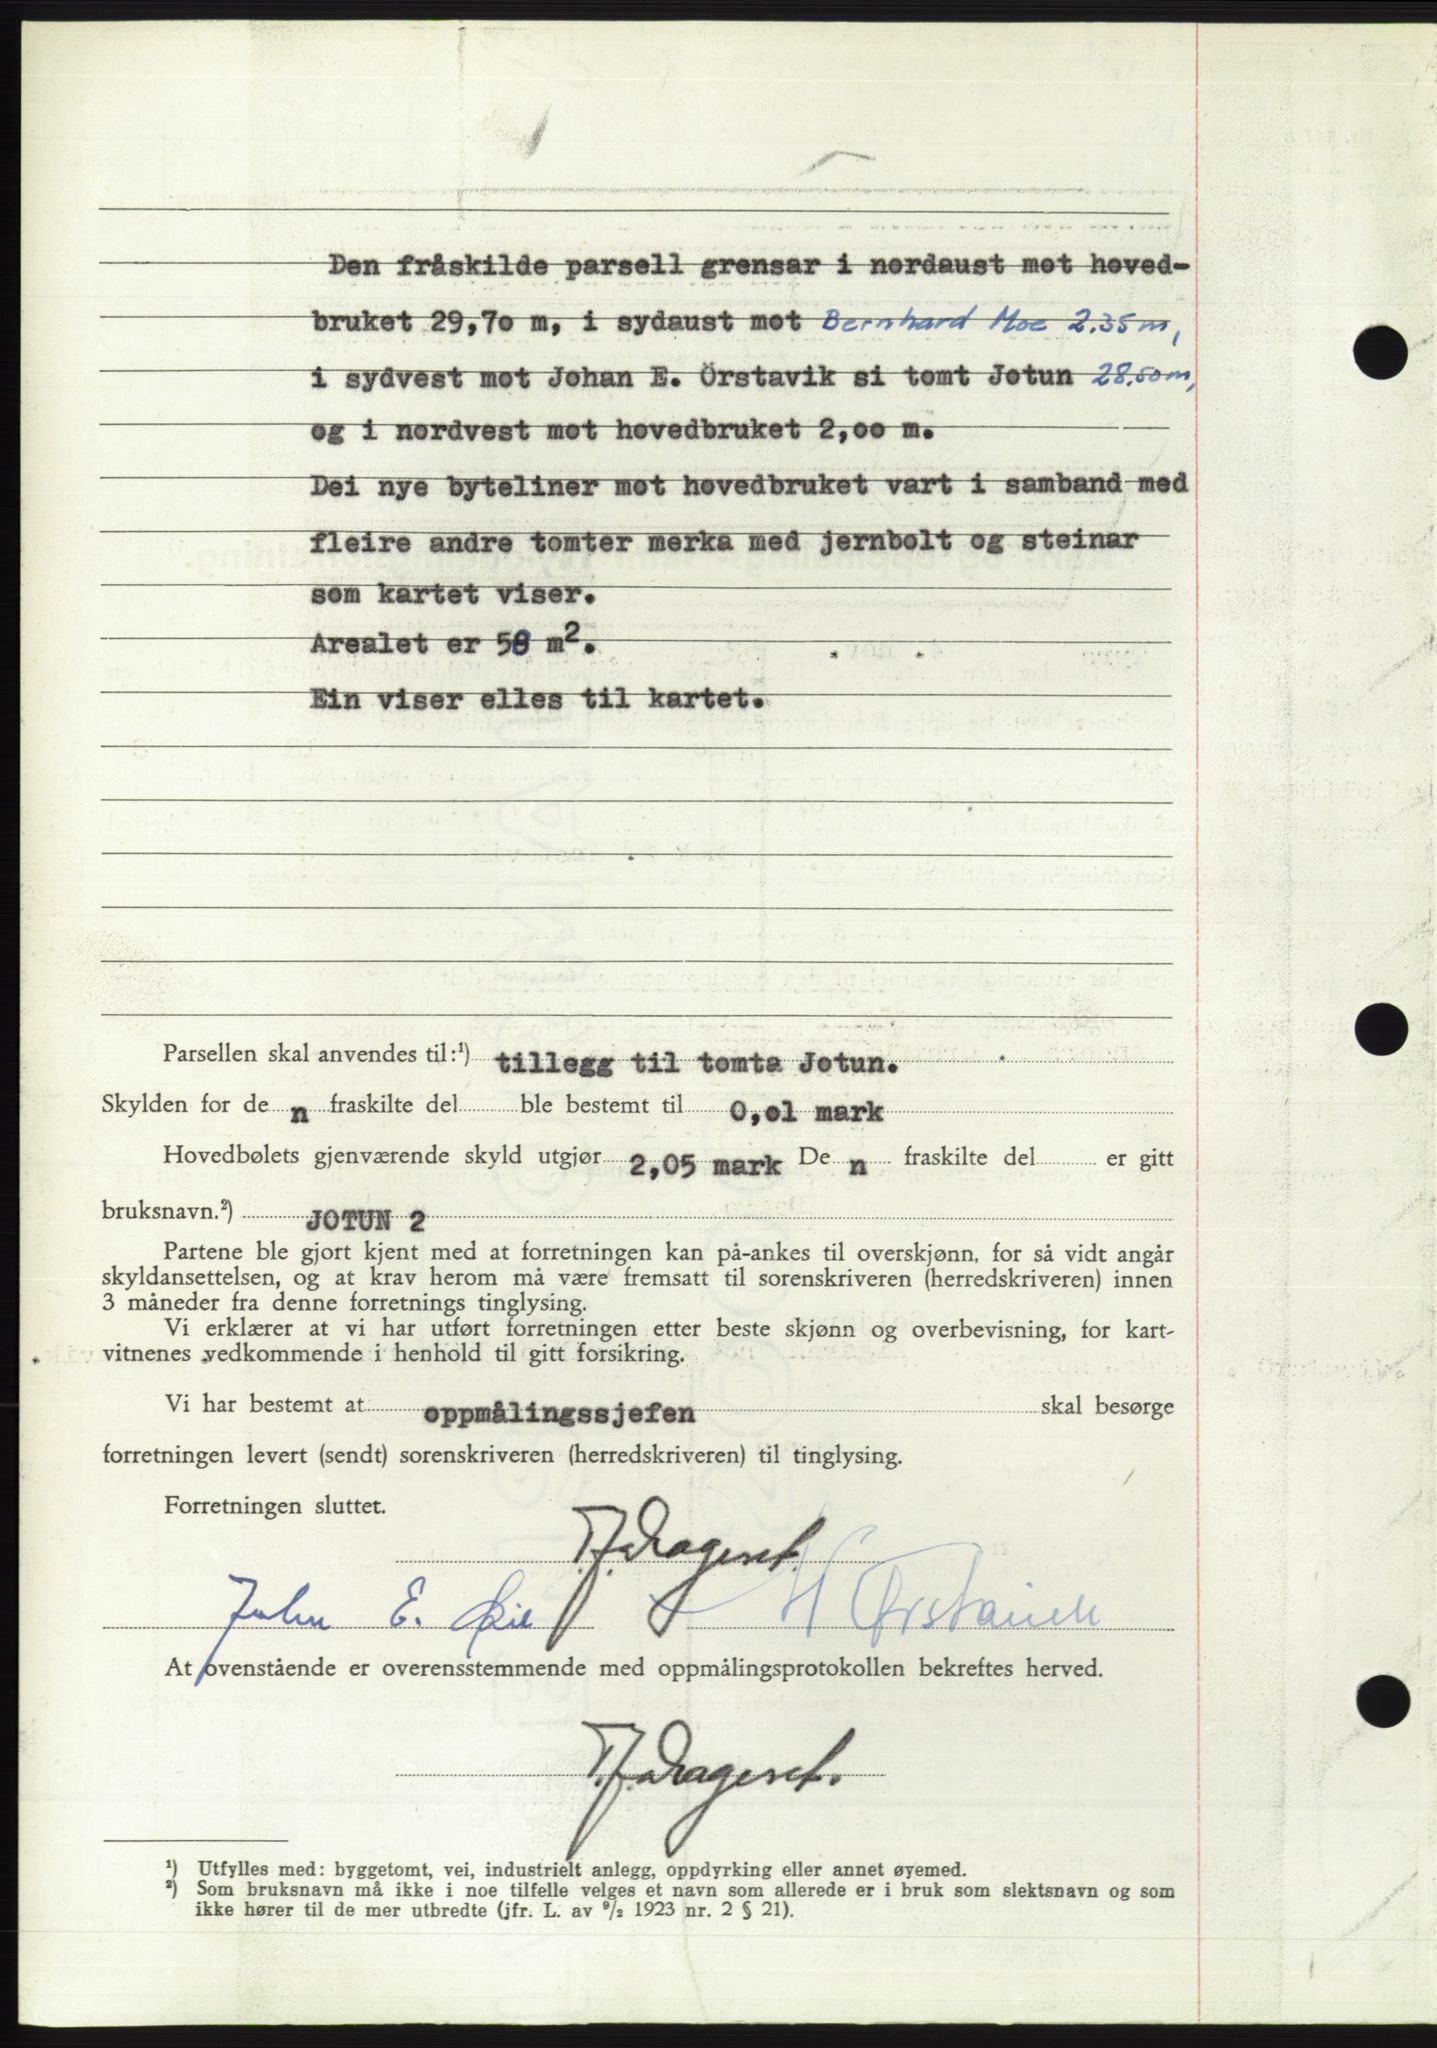 Den fråskilde parsell grensar i nordaust mot hoved-
bruket 29,70 m, i sydaust mot Bernhard Moe 2.35 m,
i sydvest mot Johan E. Örstavik si tomt Jotun 28.50 m,
og i nordvest mot hovedbruket 2,00 m.
Dei nye byteliner mot hovedbruket vart i samband med
fleire andre tomter merka med jernbolt og steinar
som kartet viser.
Arealet er 58 m².
Ein viser elles til kartet.
Parsellen skal anvendes til:¹) tillegg til tomta Jotun.
Skylden for de n fraskilte del ble bestemt til 0,01 mark
Hovedbølets gjenværende skyld utgjør 2,05 mark De n fraskilte del er gitt
bruksnavn.²) JOTUN 2
Partene ble gjort kjent med at forretningen kan på-ankes til overskjønn, for så vidt angår
skyldansettelsen, og at krav herom må være fremsatt til sorenskriveren (herredskriveren) innen
3 måneder fra denne forretnings tinglysing.
Vi erklærer at vi har utført forretningen etter beste skjønn og overbevisning, for kart-
vitnenes vedkommende i henhold til gitt forsikring.
Vi har bestemt at oppmålingssjefen skal besørge
forretningen levert (sendt) sorenskriveren (herredskriveren) til tinglysing.
Forretningen sluttet.
John E.
At ovenstående er overensstemmende med oppmålingsprotokollen bekreftes herved.
¹) Utfylles med: byggetomt, vei, industrielt anlegg, oppdyrking eller annet øyemed.
²) Som bruksnavn må ikke i noe tilfelle velges et navn som allerede er i bruk som slektsnavn og som
ikke hører til de mer utbredte (jfr. L. av ⁹/₂ 1923 nr. 2 § 21).